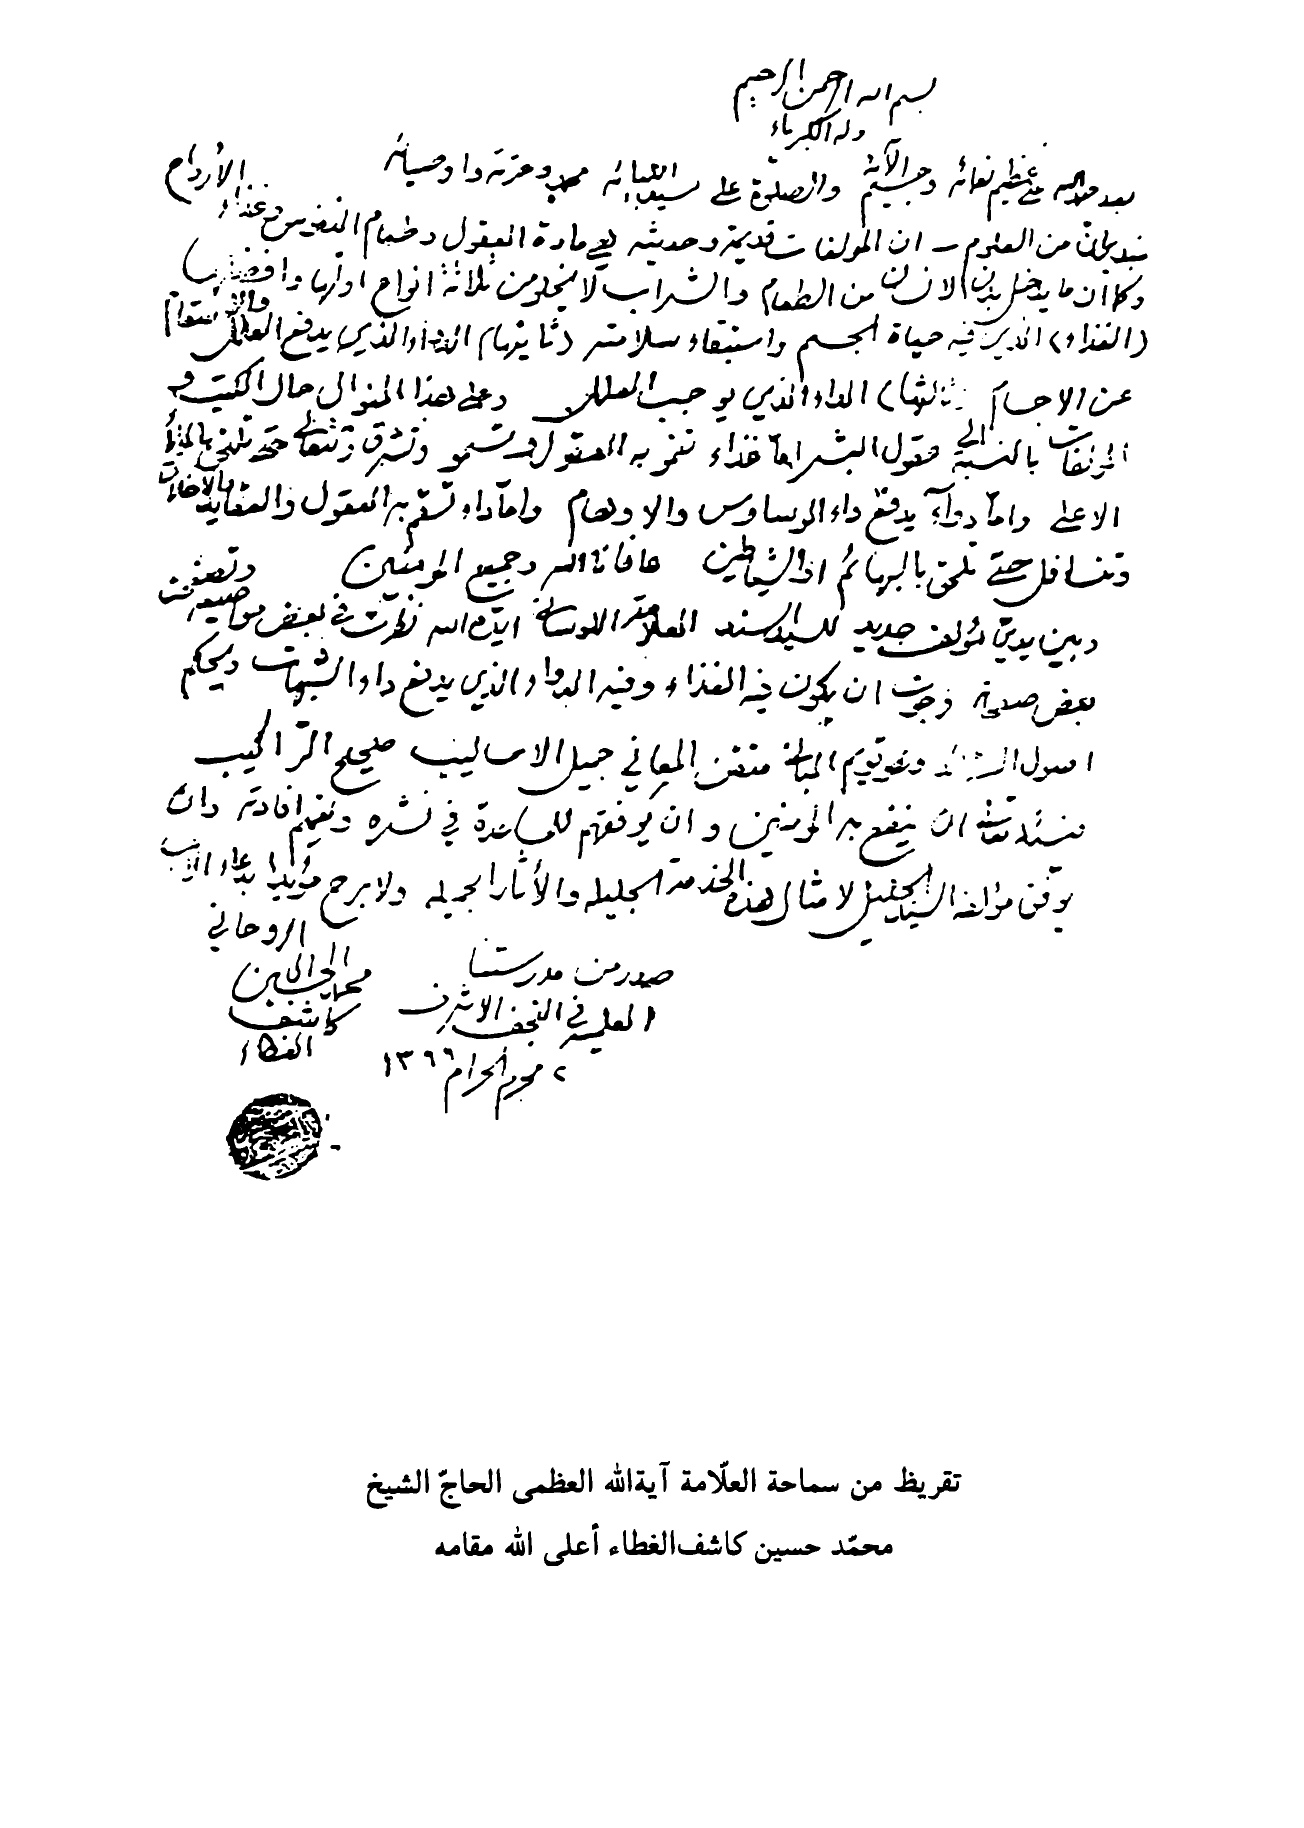 بسم الله الرحمن الرحيم
وله الكبرياء
بعد حمد الله على عظيم نعمائه وجسيم آلائه والصلوة على سيد انبيائه محمد وعترته واوصيائه
من العلوم ــ ان المؤلفات قديمة وحديثه هي مادة العقول وطعام النفوس وغذاء الأرواح
وكما ان ما يدخل بدن الانسان من الطعام والشراب لا يخلو من ثلاثة انواع اولها وافضلها
(الغذاء) الذي فيه حياة الجسم واستبقاء سلامته (ثانيها) الدواء الذي يدفع العلل والاسقام
عن الاجسام (ثالثها) الداء الذي يوجب العلل وعلى هذا المنوال حال الكتب و
المؤلفات بالنسبة الى عقول البشر اما غذاء تنمو به العقول وتسمو وتشرق وتتعالى حتى تلحق بالملأ
الاعلى واما دواء يدفع داء الوساوس والاوهام واما داء تسقم به العقول والعقايد والاخلاق
وتتسافل حتى تلحق بالبهائم او الشياطين عافانا الله وجميع المؤمنين
وبين يديّ مؤلف جديد للسيد السند العلامة اللاوساني ايده الله نظرت في بعض مواضيعه وتصفحت
بعض صحائفه فرجوت ان يكون فيه الغذاء وفيه الدواء الذي يدفع داء الشبهات ويحكم
اصول وهو قويم المباني متقن المعاني جميل الاساليب صحيح التراكيب
نسئله تعالى ان ينفع به المؤمنين وان يوفقهم للمساعدة في نشره وتعميم افادته وان
يوفق مؤلفه السيد الجليل لامثال هذه الخدمة الجليله والأثار الجميله ولا برح مؤيداً بدعاء الاب
الروحاني
صدر من مدرستنا
العلميه في النجف الاشرف
٢ محرم الحرام ١٣٦٦
محمد الحسين
كاشف
الغطاء
تقريظ من سماحة العلّامة آيةالله العظمى الحاجّ الشيخ
محمّد حسين كاشف‌الغطاء أعلى الله مقامه